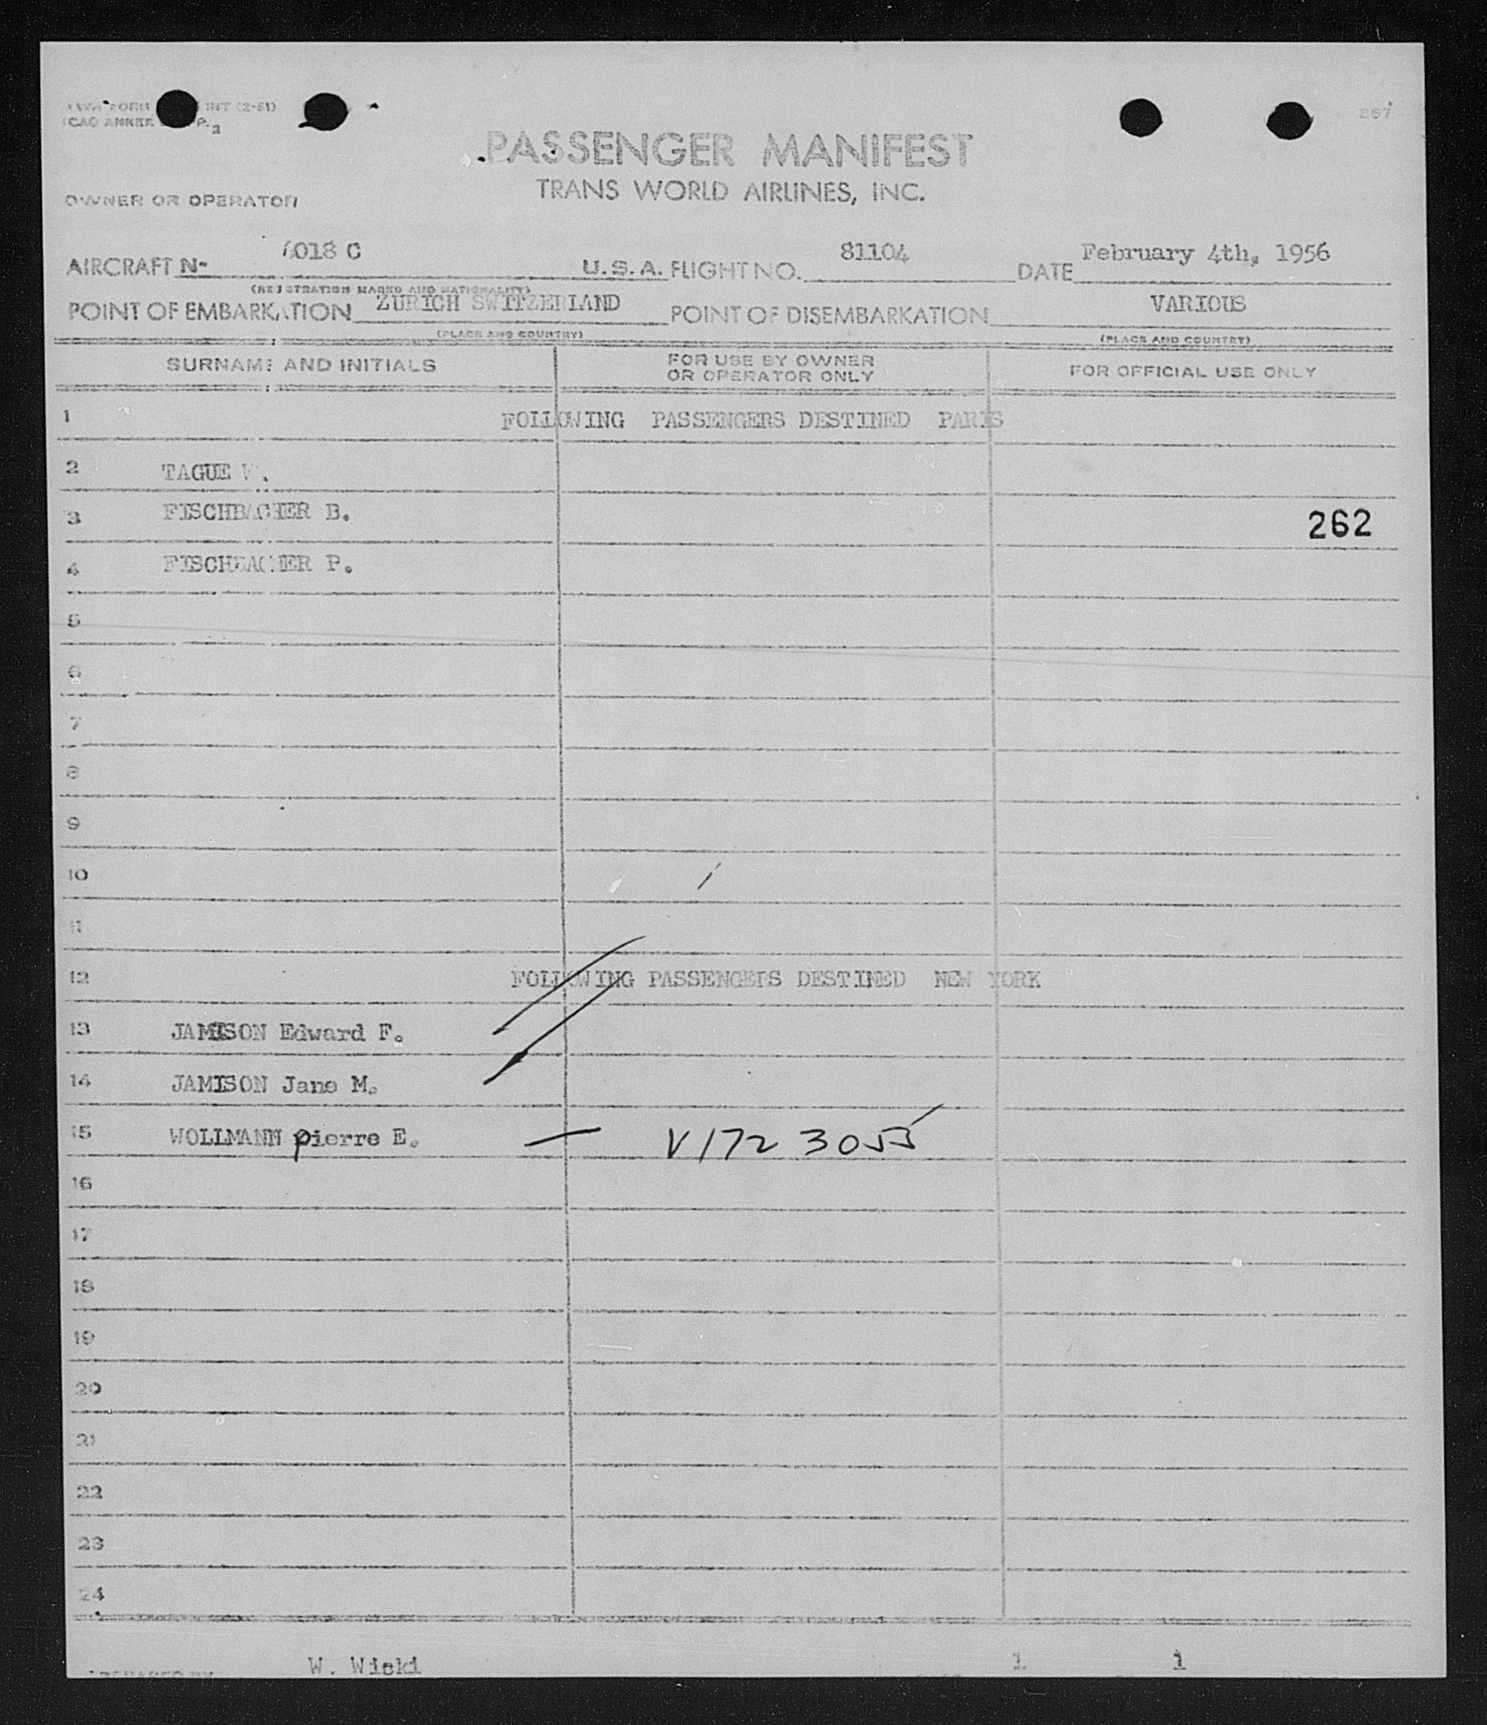 INT (2-51)
ICAO ANNEX P. 2
267
PASSENGER MANIFEST
TRANS WORLD AIRLINES, INC.
OWNER OR OPERATOR
AIRCRAFT N- 6018 C U.S.A. FLIGHT NO. 81104 DATE February 4th, 1956
(REGISTRATION MARKS AND NATIONALITY)
POINT OF EMBARKATION ZURICH SWITZERLAND POINT OF DISEMBARKATION VARIOUS
(PLACE AND COUNTRY) (PLACE AND COUNTRY)
SURNAME AND INITIALS FOR USE BY OWNER OR OPERATOR ONLY FOR OFFICIAL USE ONLY
1 FOLLOWING PASSENGERS DESTINED PARIS
2 TAGUE W.
3 FISCHBACHER B. 262
4 FISCHBACHER P.
5
6
7
8
9
10
11
12 FOLLOWING PASSENGERS DESTINED NEW YORK
13 JAMISON Edward F.
14 JAMISON Jane M.
15 WOLLMANN pierre E. — V172 3055
16
17
18
19
20
21
22
23
24
PREPARED BY W. Wicki 1 1